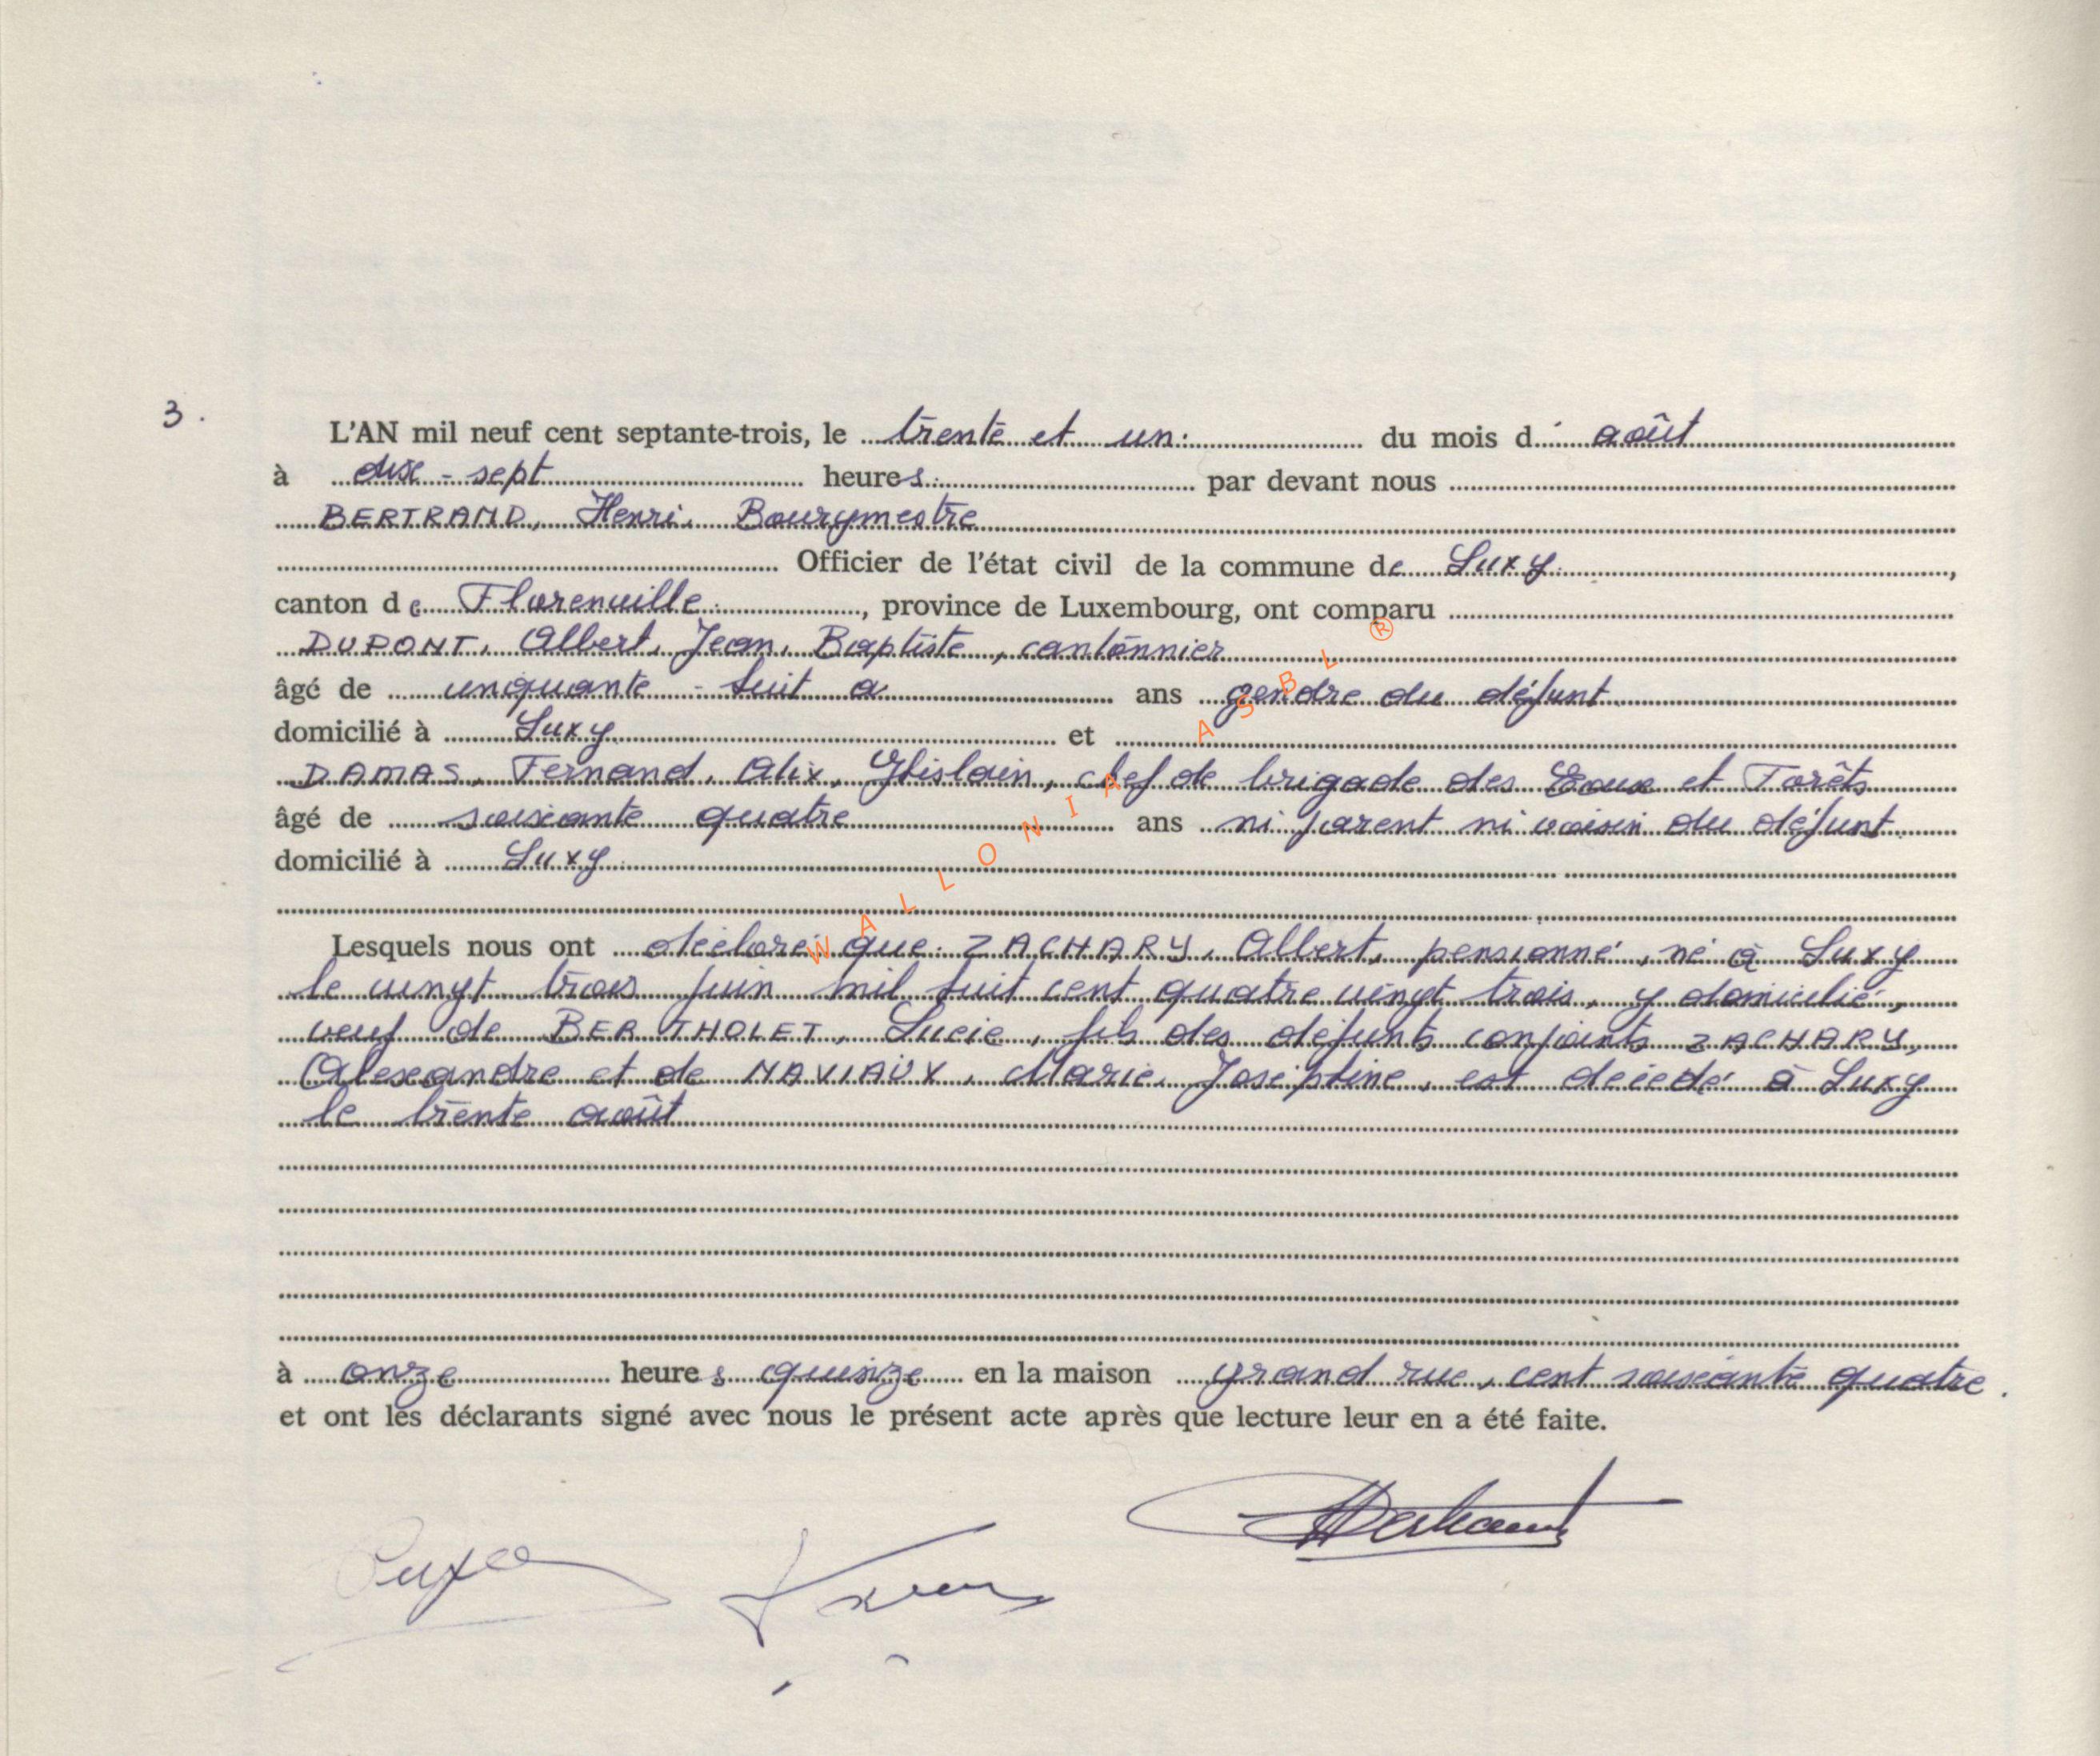 3.
L'AN mil neuf cent septante-trois, le trente et un du mois d' août
à dix-sept heures par devant nous
BERTRAND, Henri, Bourgmestre
Officier de l'état civil de la commune de Suxy,
canton de Florenville, province de Luxembourg, ont comparu
DUPONT, Albert, Jean, Baptiste, cantonnier
âgé de cinquante-huit a ans gendre du défunt
domicilié à Suxy et
DAMAS, Fernand, Alix, Ghislain, chef de brigade des Eaux et Forêts
âgé de soixante quatre ans ni parent ni voisin du défunt
domicilié à Suxy
Lesquels nous ont déclaré que: ZACHARY, Albert, pensionné, né à Suxy
le vingt trois juin mil huit cent quatre vingt trois, y domicilié,
veuf de BERTHOLET, Lucie, fils des défunts conjoints ZACHARY,
Alexandre et de NAVIAUX, Marie, Joséphine, est décédé à Suxy
le trente août
à onze heures quinze en la maison grand rue, cent soixante quatre.
et ont les déclarants signé avec nous le présent acte après que lecture leur en a été faite.
HBertrand
WALLONIA ASBL ®